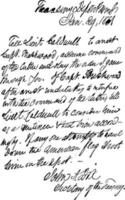 Treasury Department
Jan. 29, 1861
Tell Lieut. Caldwell to arrest
Capt. Breshwood, assume command
of the Cutter and obey the order I gave
through you. If Capt. Breshwood
after arrest undertakes to interfere
with the command of the Cutter, tell
Lieut. Caldwell to consider him
as a mutineer & treat him accord-
ingly. If any one attempts to haul
down the American flag, shoot
him on the spot.
John A. Dix
Secretary of the Treasury